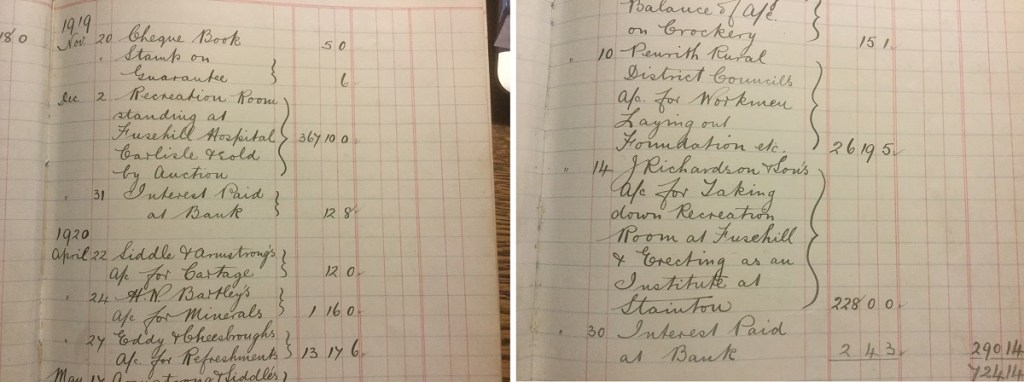 1919
18 0
Nov. 20 Cheque Book 5 0
" Stamp on
Guarantee 6
Dec 2 Recreation Room
standing at
Fusehill Hospital 367 10 0
Carlisle & sold
by Auction
" 31 Interest Paid
at Bank 12 8
1920
April 22 Siddle & Armstrong's
A/c for Cartage 12 0
" 24 H W Bartley's
A/c for Minerals 1 16 0
" 27 Eddy & Cheesbrough's
A/c for Refreshments 13 17 6
May 17 Armstrong & Siddle's
Balance of A/c
on Crockery 15 1
" 10 Penrith Rural
District Councill's
A/c. for Workmen
Laying out
Foundation etc. 26 19 5
" 14 J Richardson & Son's
A/c for Taking
down Recreation
Room at Fusehill
& Erecting as an
Institute at
Stainton 228 0 0
" 30 Interest Paid
at Bank 2 4 3 290 14
724 14